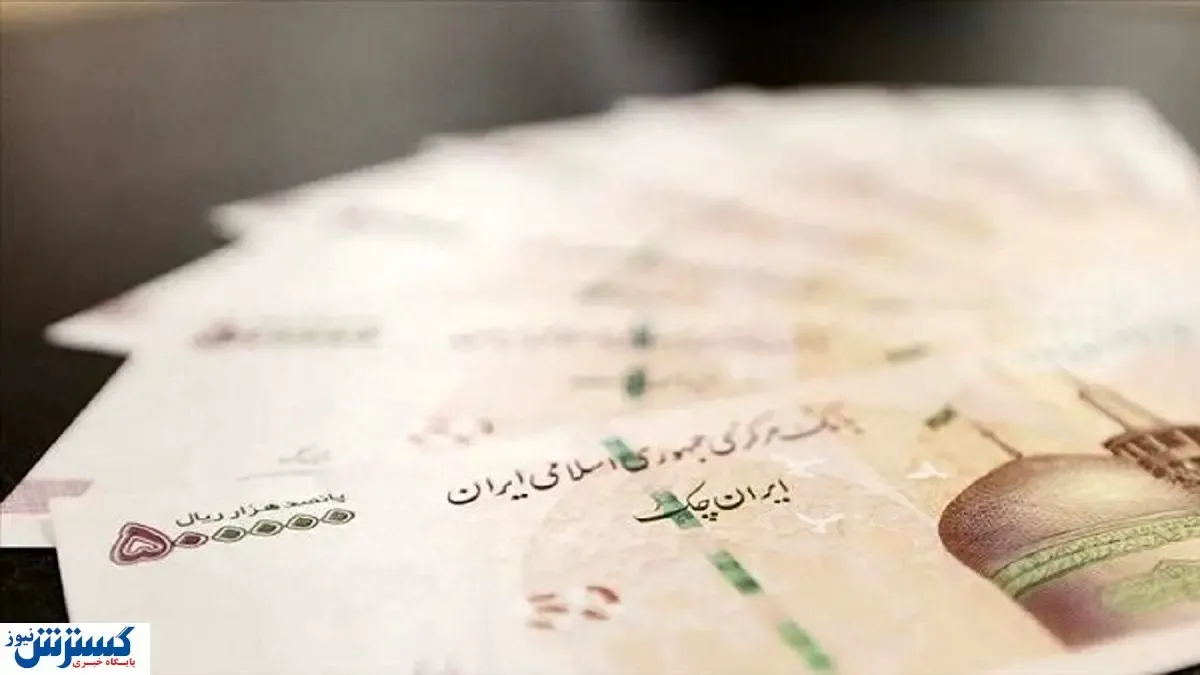 بانک مرکزی جمهوری اسلامی ایران
ایران چک
پانصد هزار ریال
۵۰۰۰۰۰
گسترش نیوز
پایگاه خبری